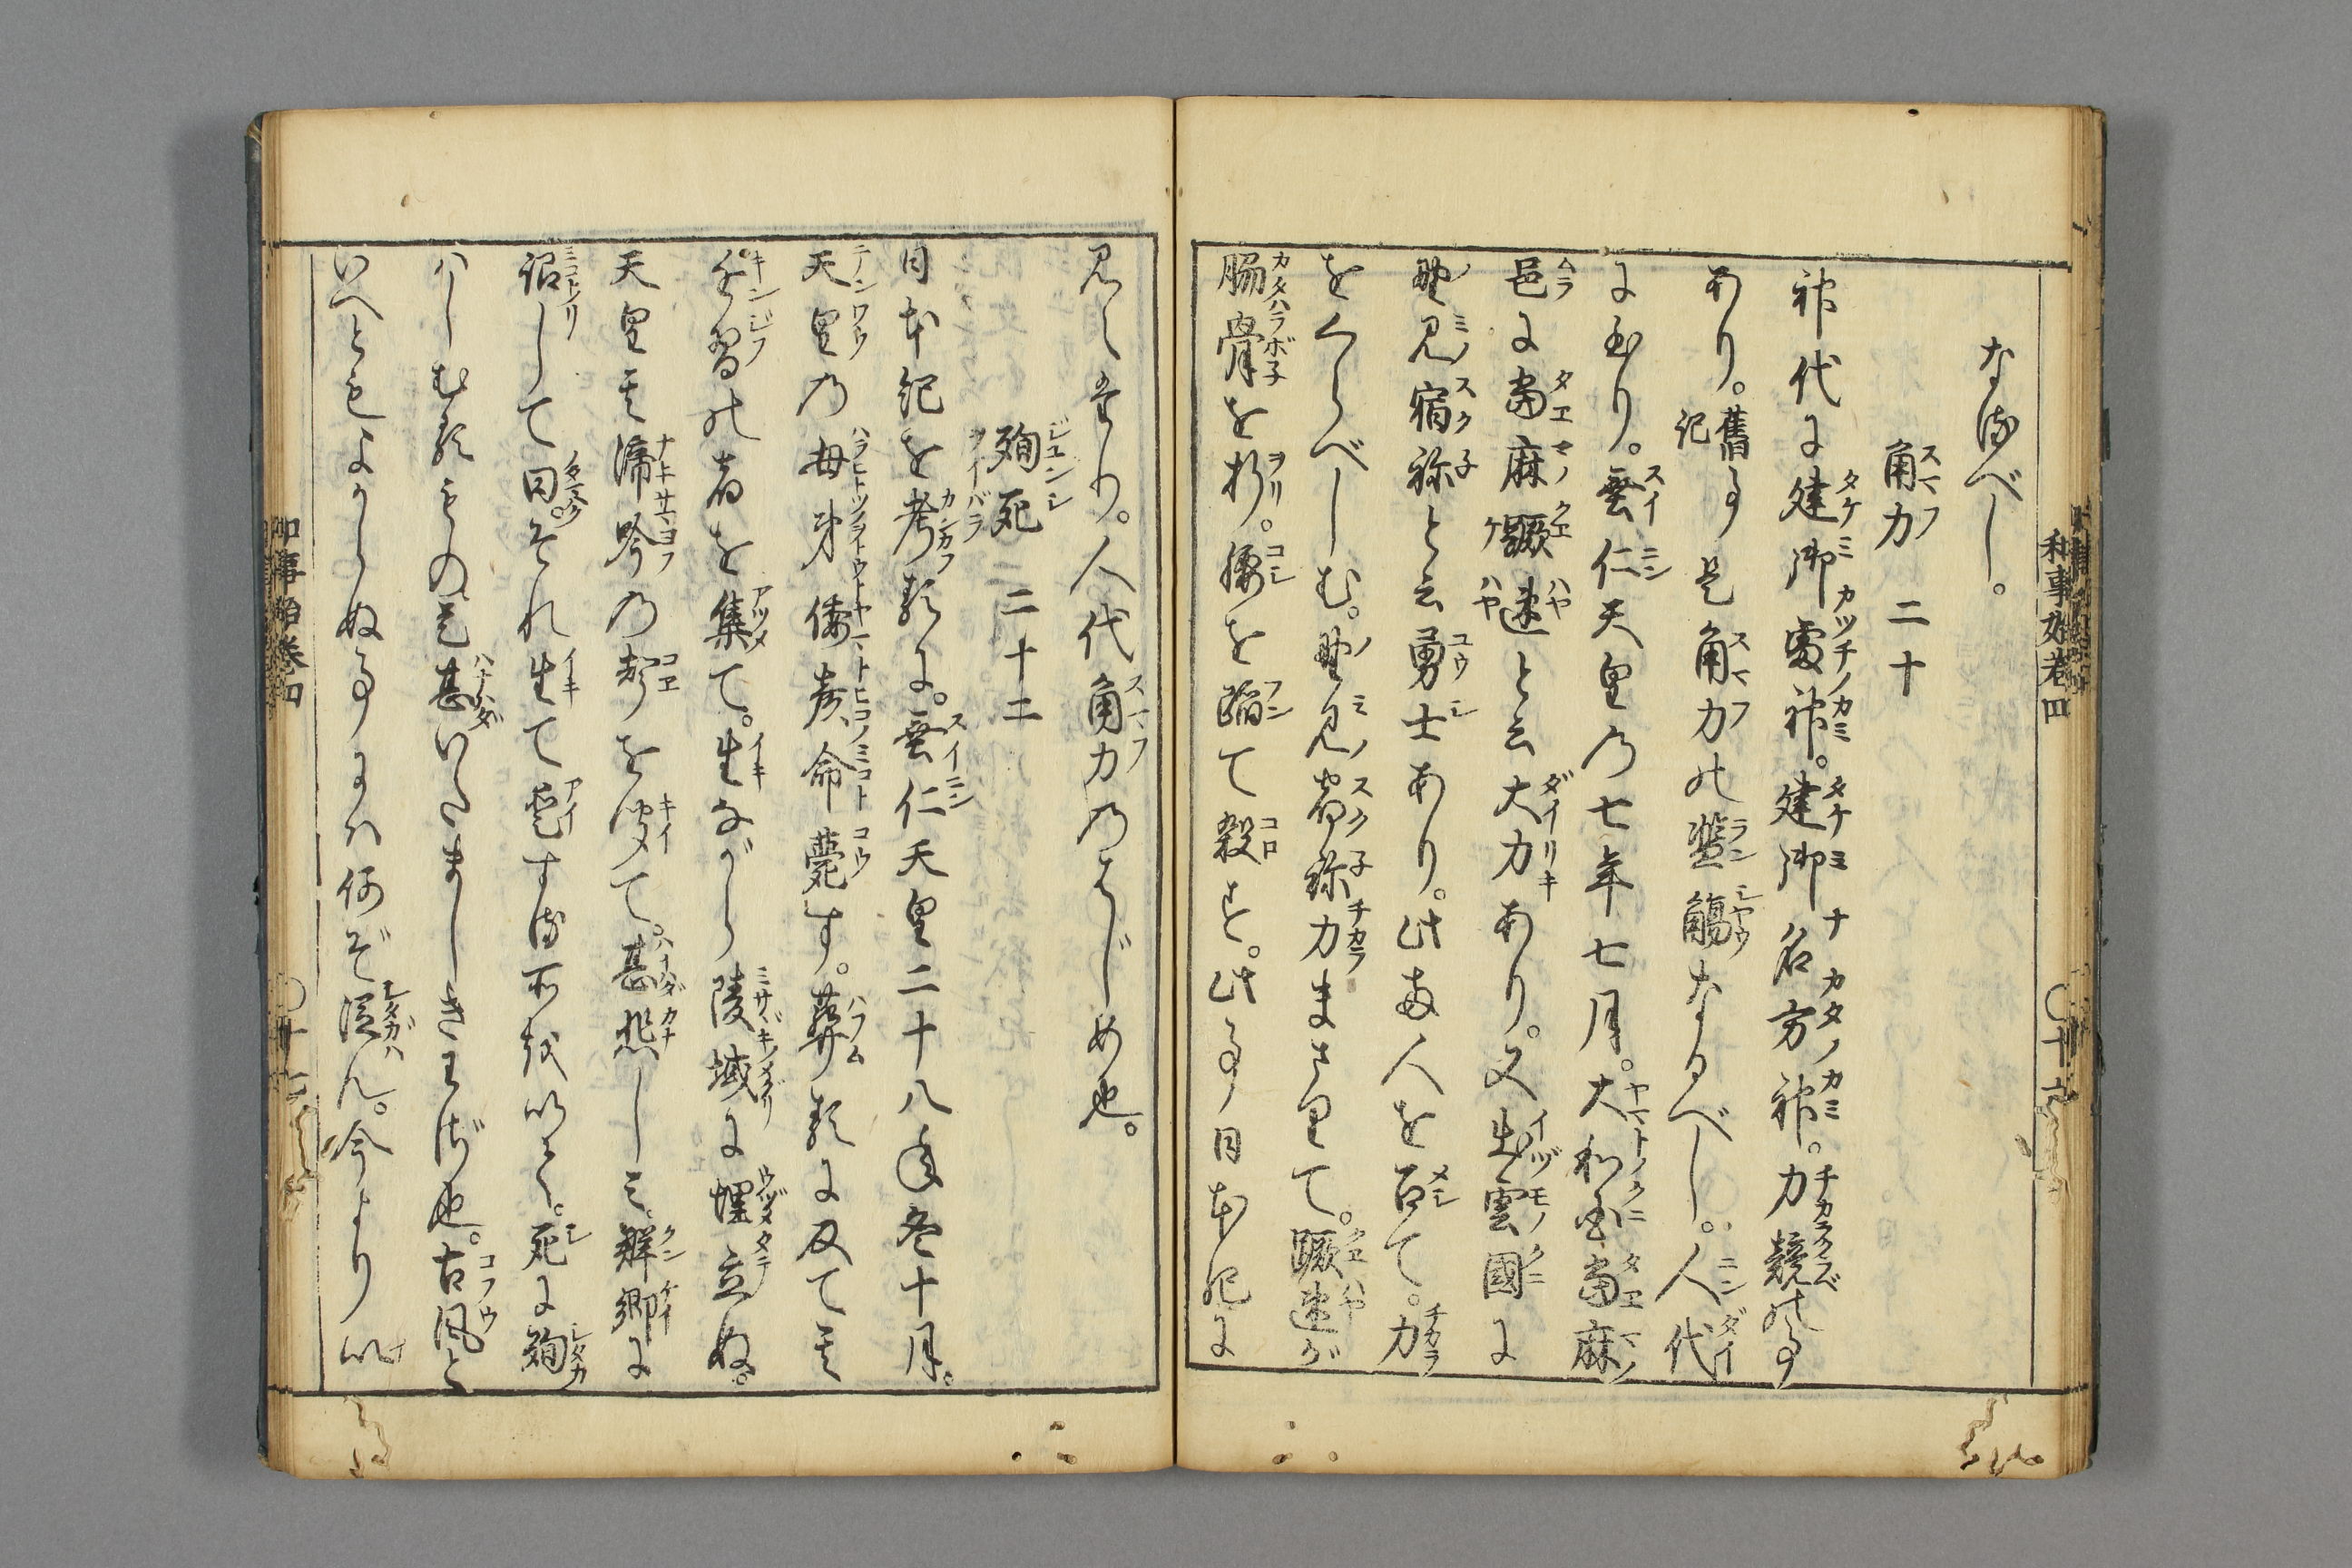 なるべし。
角力 二十
神代に建御雷神。建御名方神。力競の事
あり。舊事記是角力の濫觴なるべし。人代
に至り。垂仁天皇の七年七月。大和国當麻
邑に當麻蹶速と云大力あり。又出雲國に
野見宿祢と云勇士あり。此両人を召て。力
をくらべしむ。野見宿祢力まさりて。蹶速が
腸骨を折。腰を蹈て殺す。此事日本紀に
見えたり。人代角力のはじめ也。
殉死 二十二
日本紀を考るに。垂仁天皇二十八年冬十月。
天皇の母弟倭彦命薨す。葬るに及て其
近習の者を集て。生ながら陵域に埋立ぬ。
天皇其渧吟の声を聞て。甚悲しミ。群卿に
詔して曰。それ生て愛する所を以て。死に殉
はしむるものは甚いたましきわざ也。古風と
いへともよからぬ事には何ぞ従ん。今より以
和事始巻四
〇十六
和事始巻四